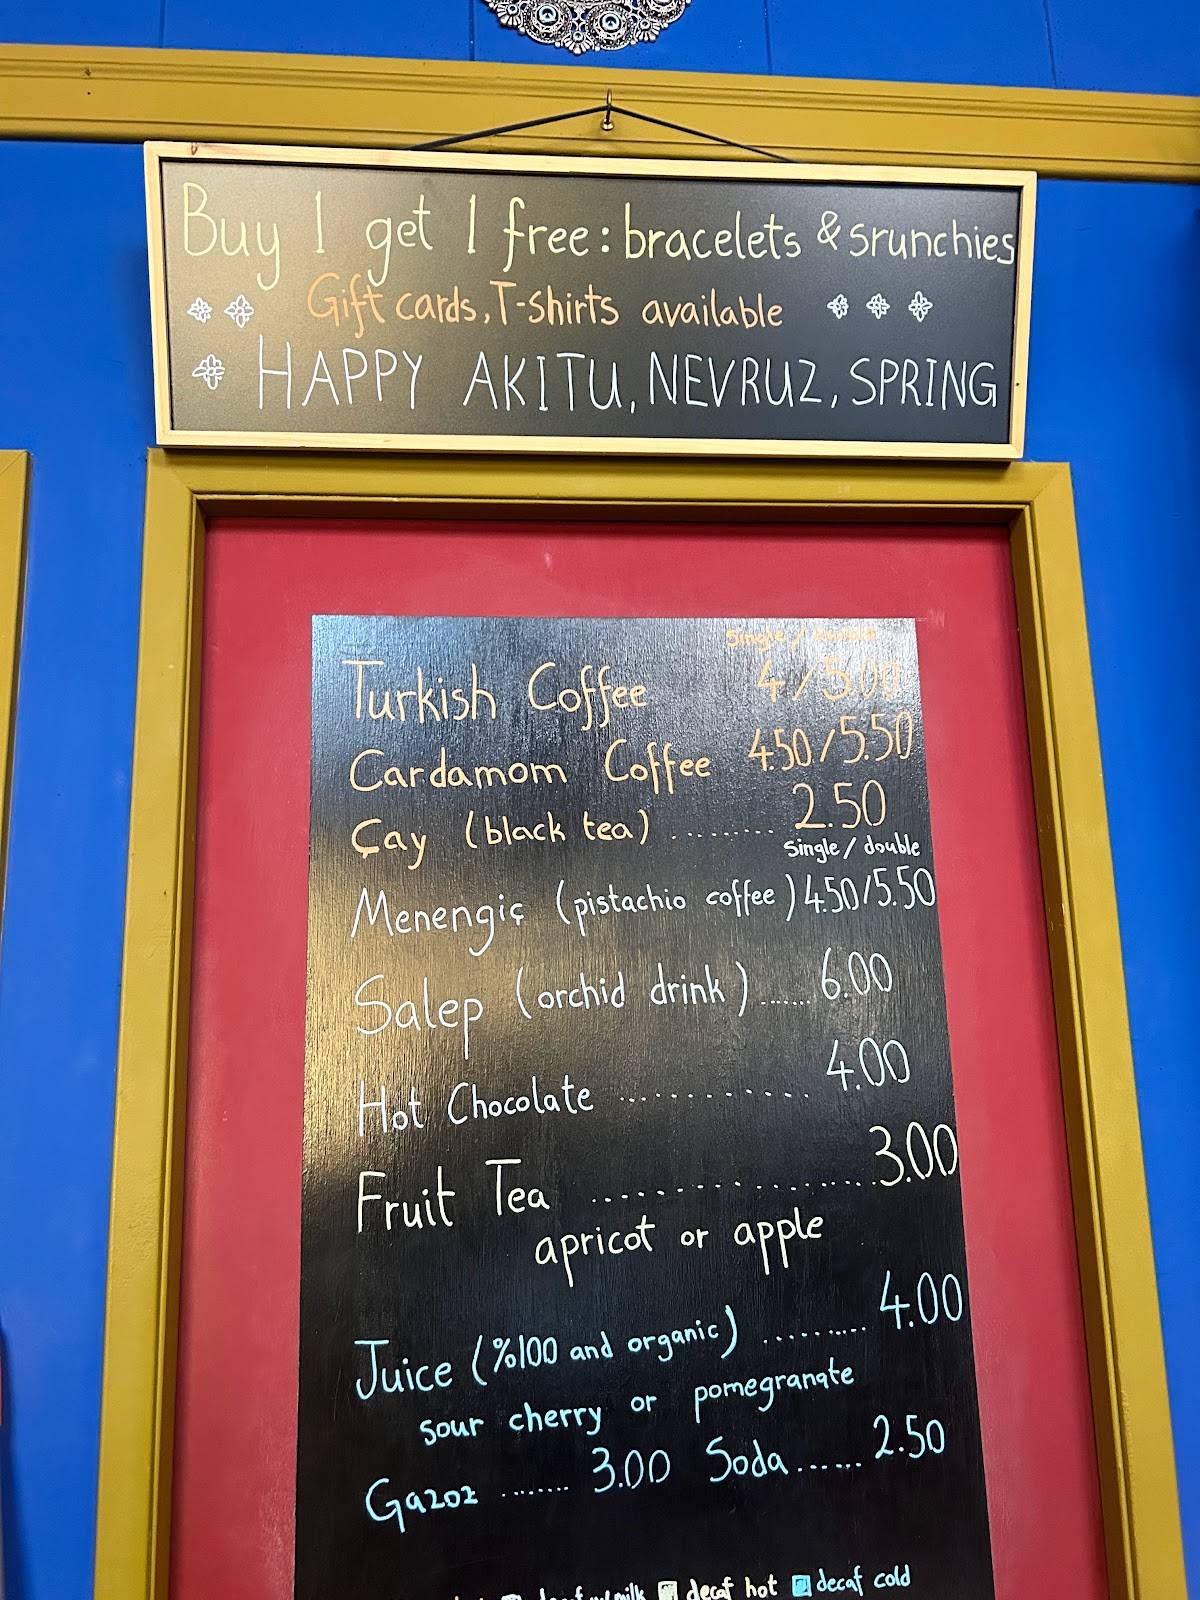 Buy 1 get 1 free: bracelets & srunchies
Gift cards, T-shirts available
HAPPY AKITU, NEVRUZ, SPRING
Single / double
Turkish Coffee 4/5.00
Cardamom Coffee 4.50/5.50
Çay (black tea) ......... 2.50
Single / double
Menengiç (pistachio coffee) 4.50/5.50
Salep (orchid drink) ....... 6.00
Hot Chocolate ............ 4.00
Fruit Tea .................. 3.00
apricot or apple
Juice (%100 and organic) ......... 4.00
sour cherry or pomegranate
Gazoz ........ 3.00 Soda ...... 2.50
decaf hot decaf cold